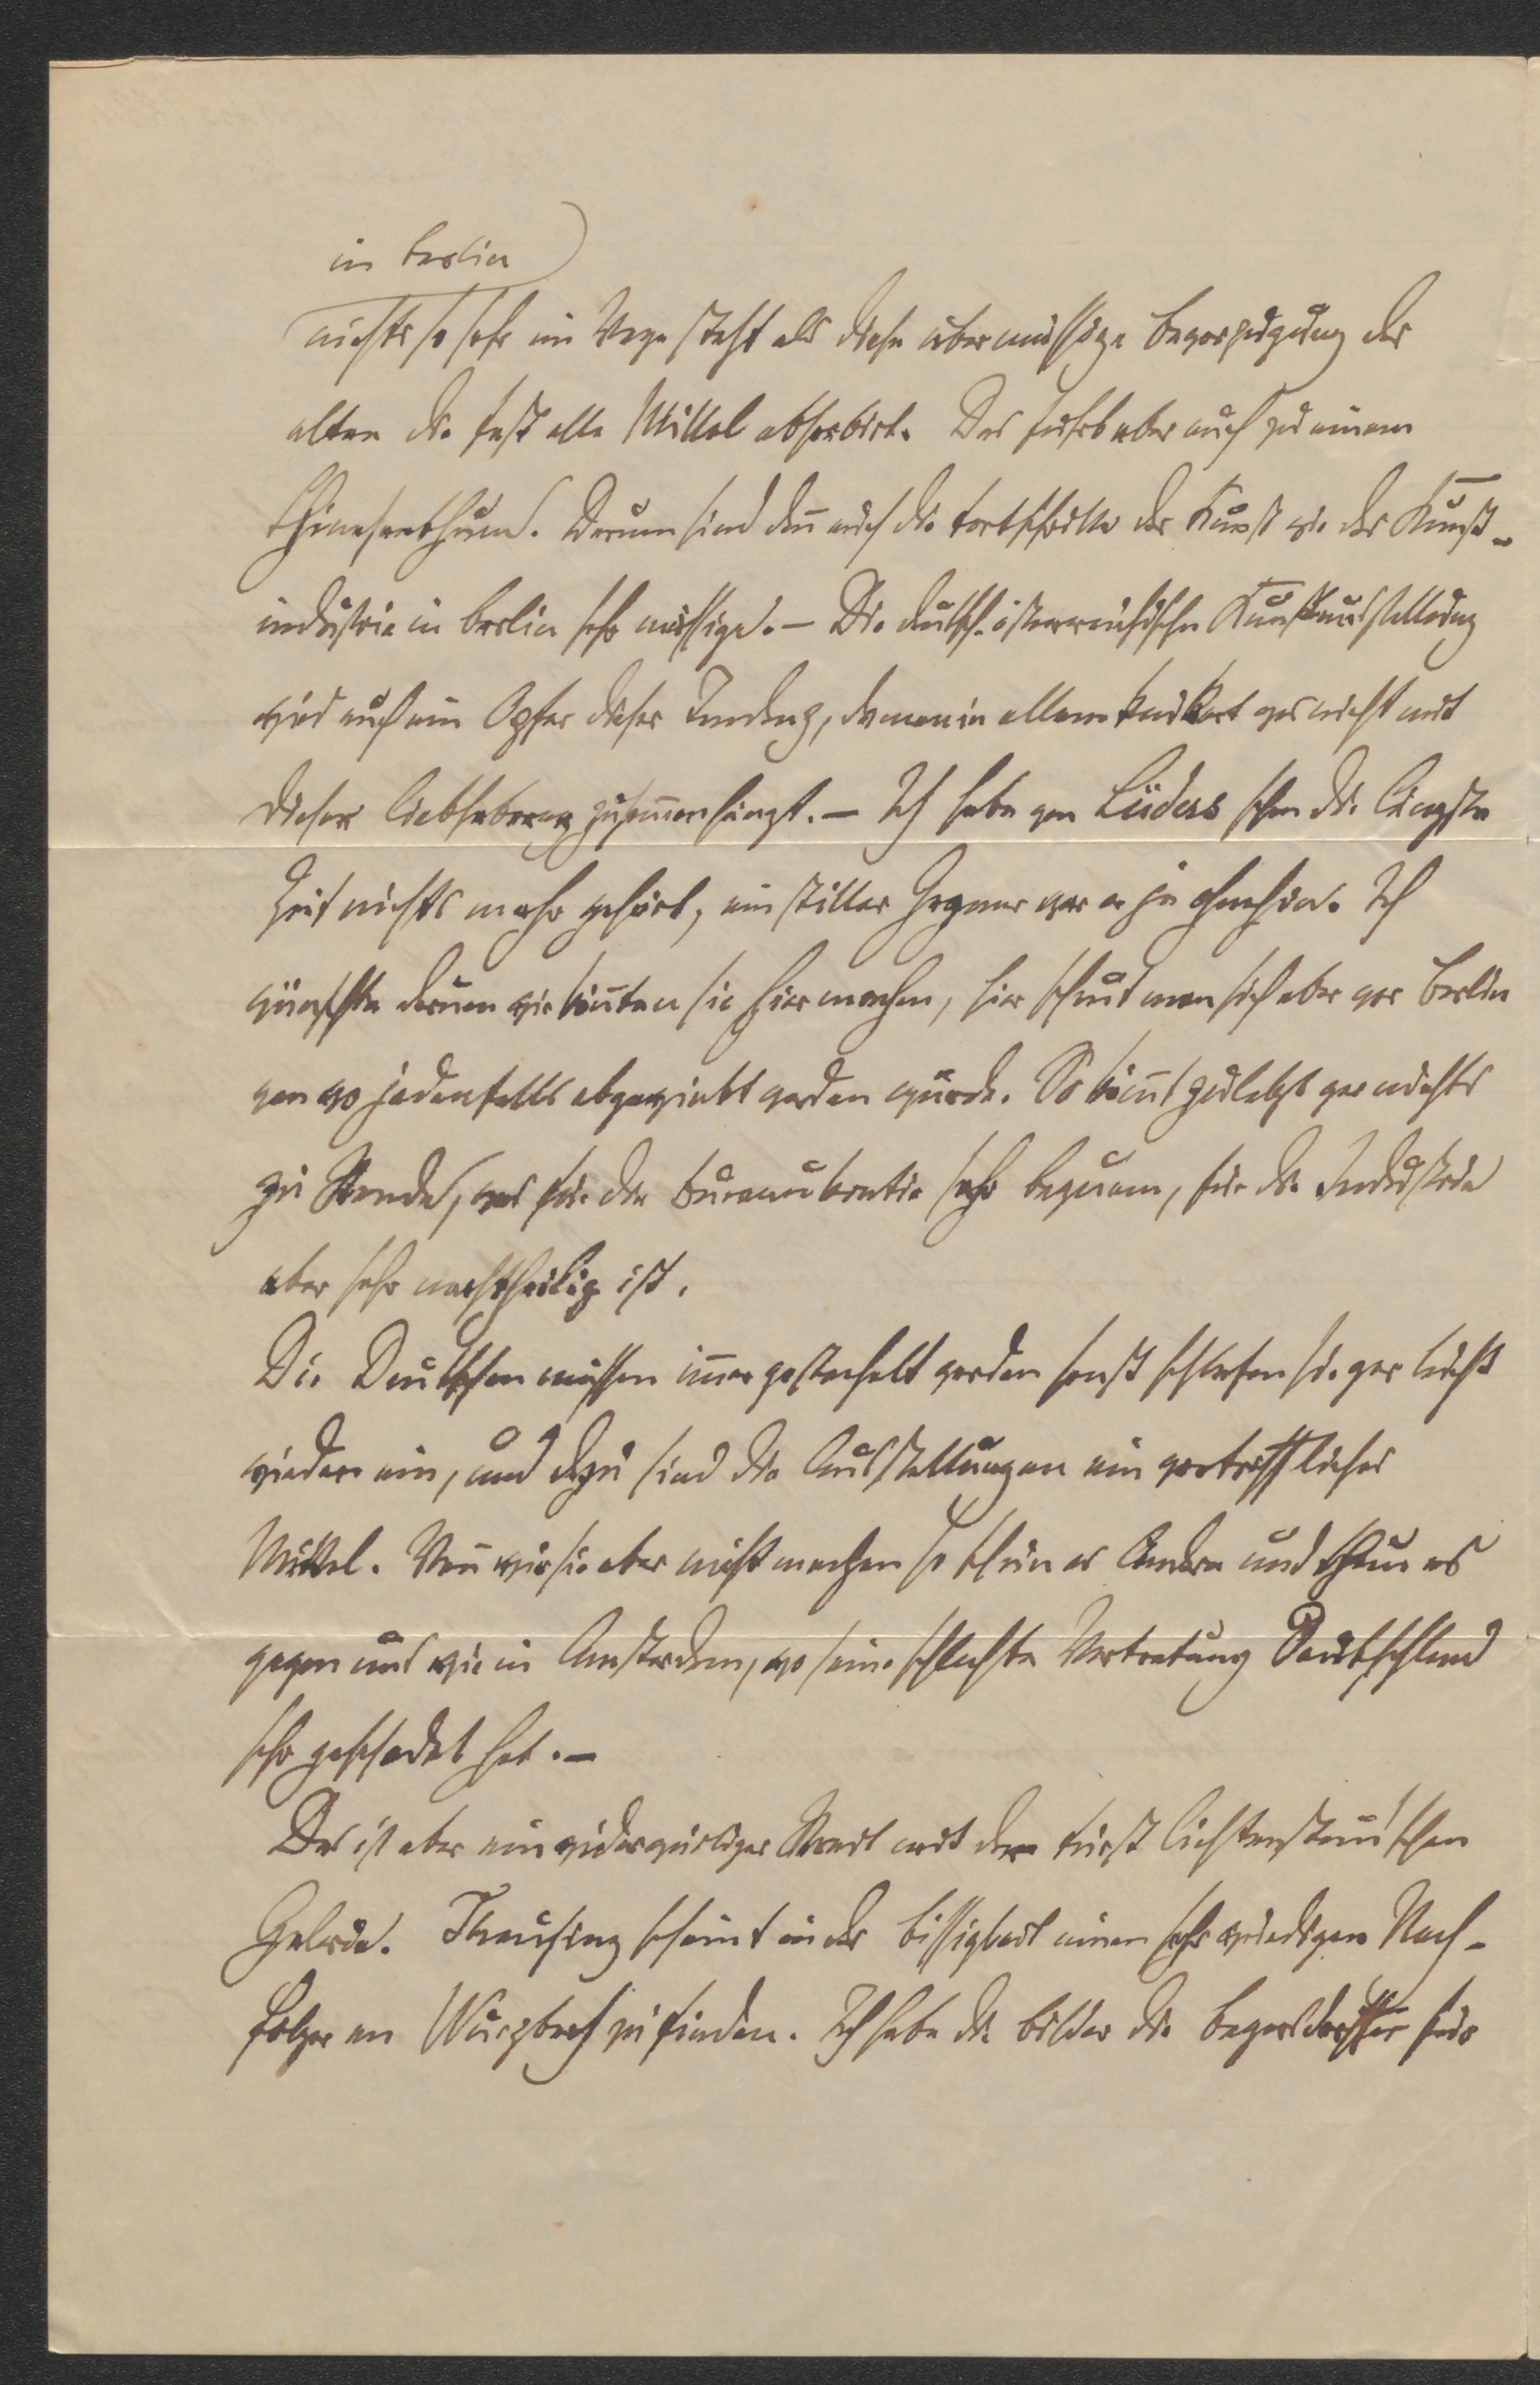 in Berlin
nichts so sehr im Wege steht als diese übermässige Bevorzugung der
alten die fast alle Mittel absorbirt. Das führt aber auch zu einem
Chinesenthum. Darum sind den̅ auch die Fortschritte der Kunst wie der Kunst-
industrie in Berlin sehr mässige. – Die deutsch-österreichische Kunstausstellung
wird auch ein Opfer dieser Tendenz, da man in allem was gar nicht mit
dieser Liebhaberei zusam̅enhängt. – Ich habe von Lüders schon die längste
Zeit nichts mehr gehört, ein stiller Gegner war er ja ohnehin. Ich
wünschte darum wir kön̅ten sie hier machen, hier scheut man sich aber vor Berlin
von wo jedenfalls abgewinkt werden würde. So kom̅t zuletzt gar nichts
zu Stande, was für die Bureaukratie sehr bequem, für die Industrie
aber sehr nachtheilig ist.
Die Deutschen müssen im̅er gestachelt werden sonst schlafen sie gar leicht
wieder ein, und dazu sind die Ausstellungen ein vortreffliches
Mittel. Wen̅ wir sie aber nicht machen so thun es Andere und thun es
gegen uns wie in Amsterdam, wo seine schlechte Vertretung Deutschland
sehr geschadet hat. –
Das ist aber ein widerwärtiger Streit mit der Fürst Lichtenstein'schen
Galerie. Thausing scheint in der Bissigkeit einen sehr würdigen Nach-
folger an Wurzbach zu finden. Ich habe die Bilder die Bayersdorffer für